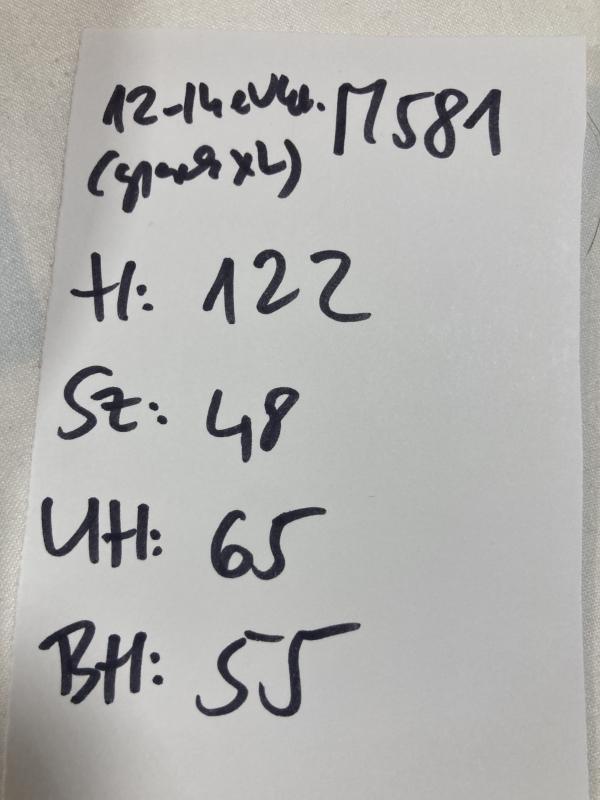 12-14 évks. M581
(gyerek XL)
H: 122
Sz: 48
UH: 65
BH: 55